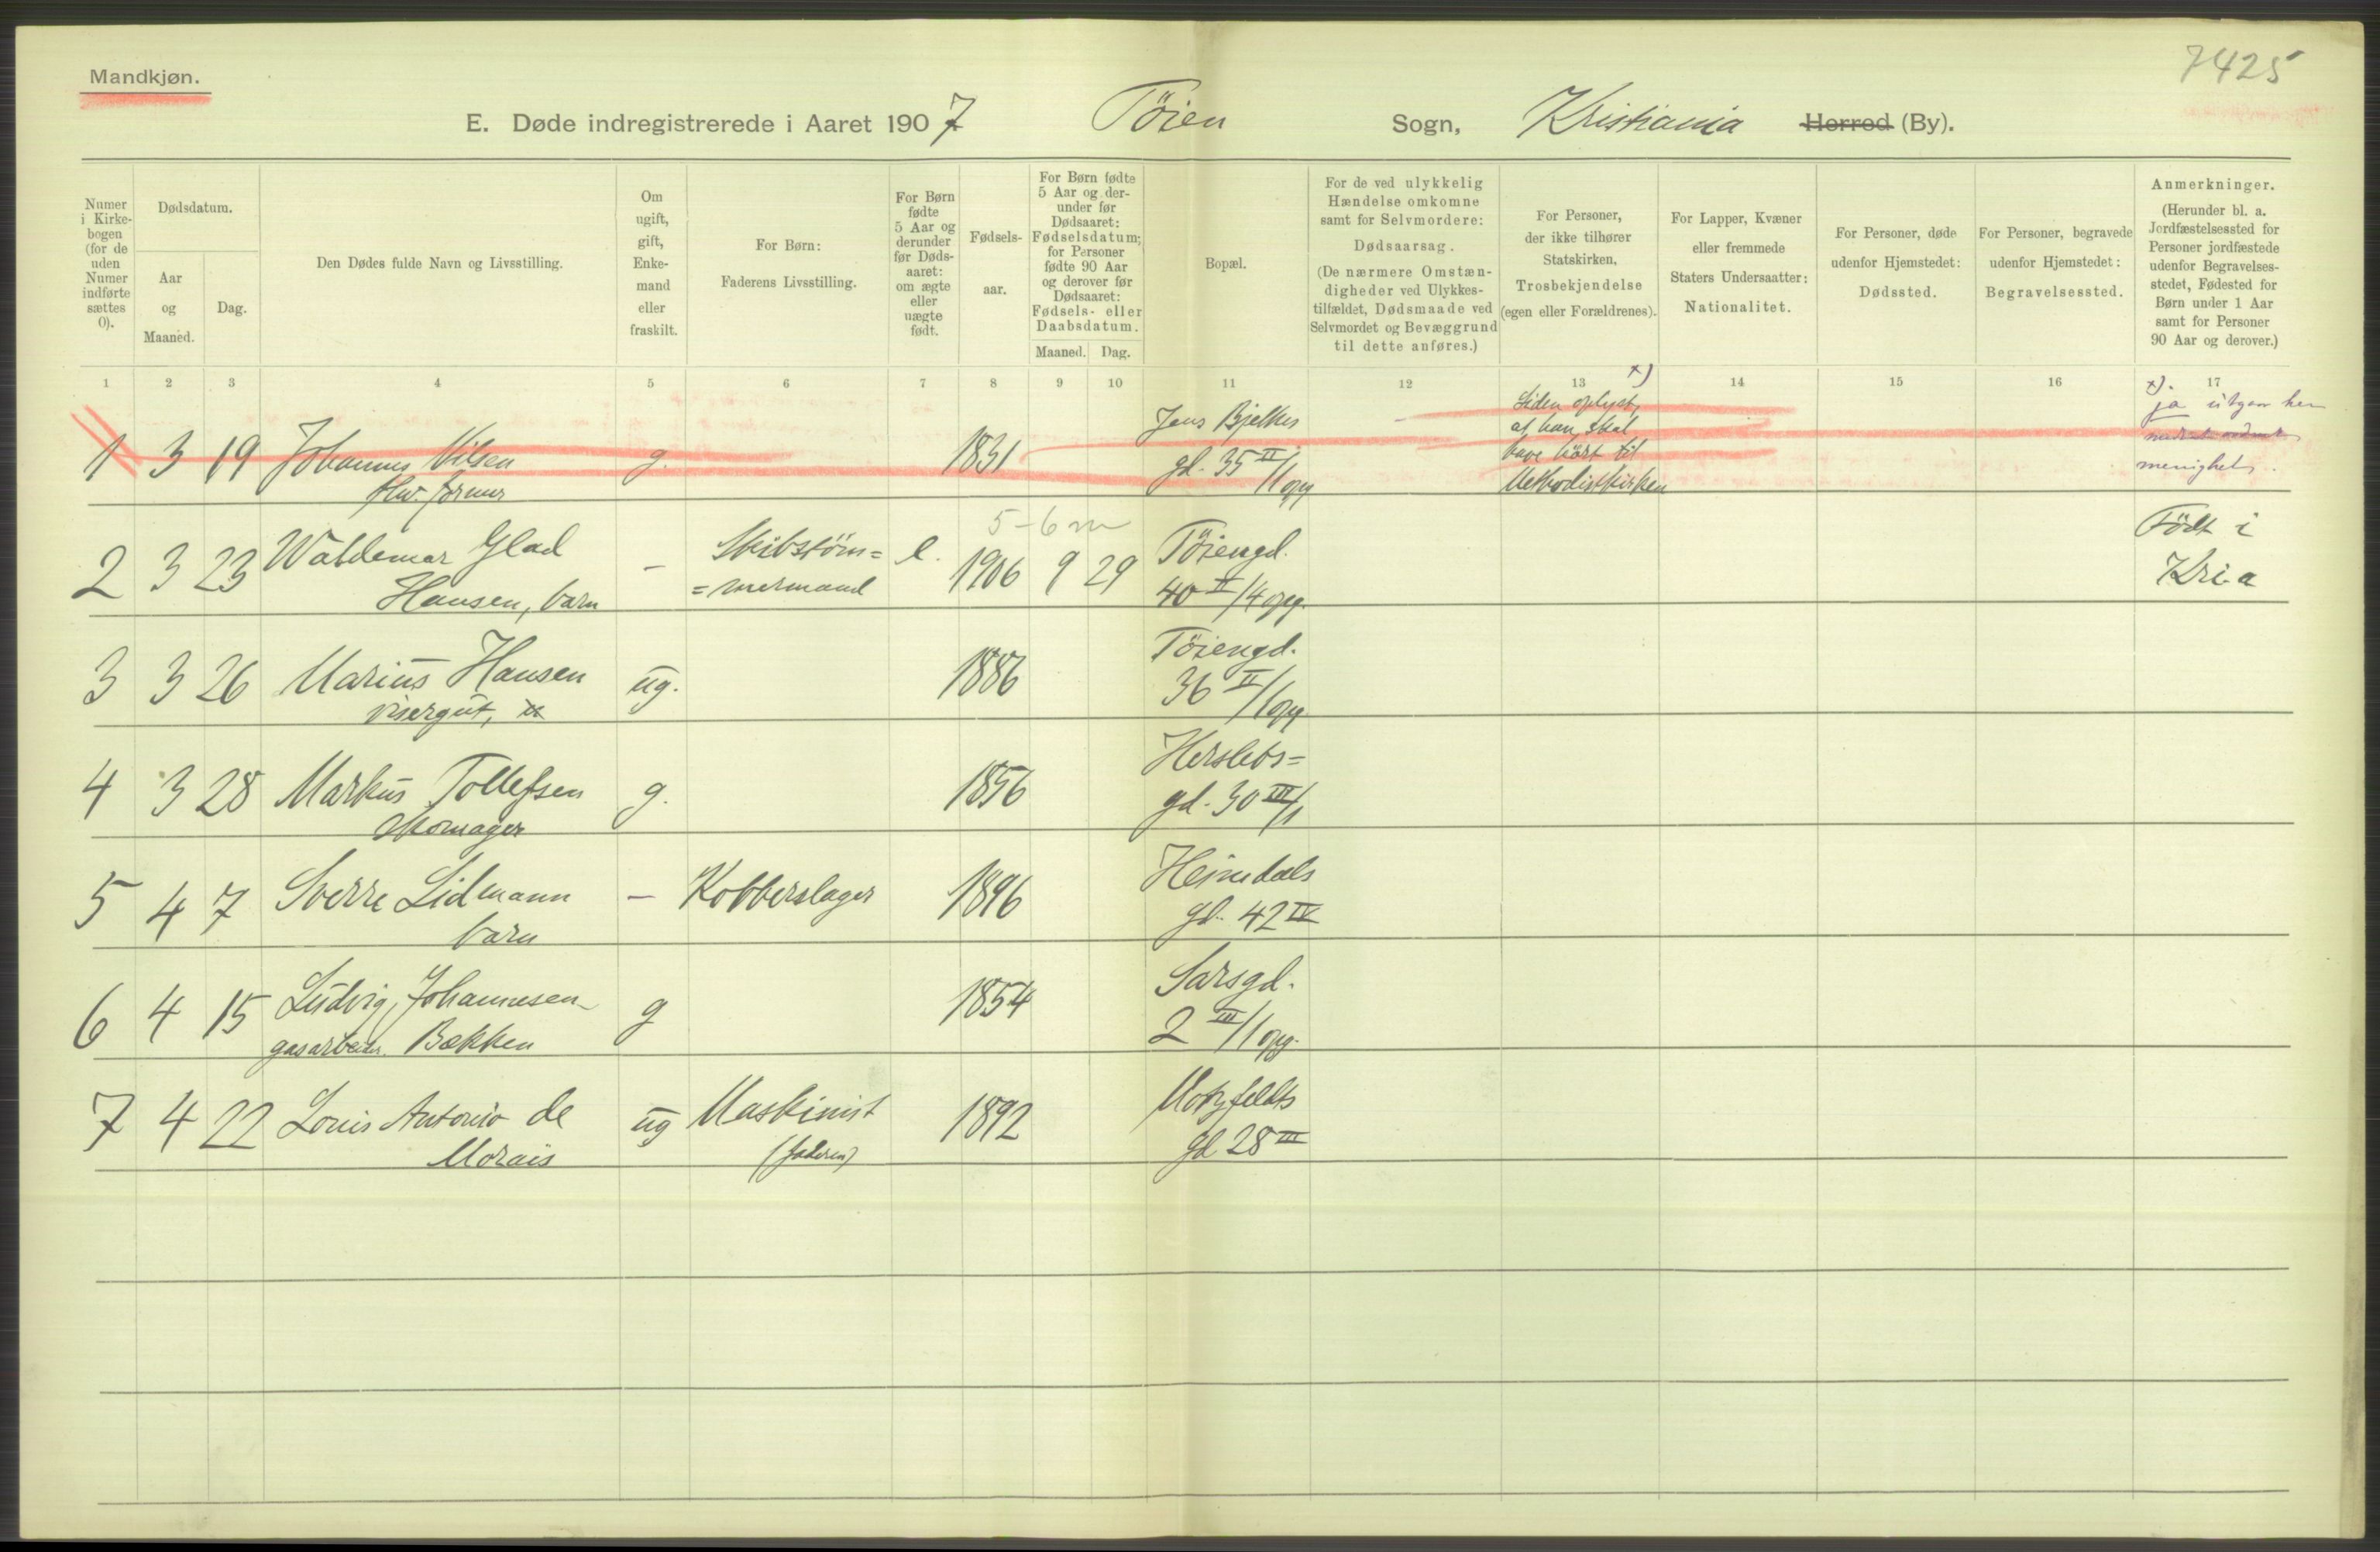 7425
Mandkjøn.
E. Døde indregistrerede i Aaret 1907 Töien Sogn, Kristiania Herred (By).
Numer i Kirkebogen (for de uden Numer indførte sættes 0).
Dødsdatum.
Aar og Maaned.
Dag.
Den Dødes fulde Navn og Livsstilling.
Om ugift, gift, Enkemand eller fraskilt.
For Børn: Faderens Livsstilling.
For Børn fødte 5 Aar og derunder før Dødsaaret: om ægte eller uægte født.
Fødselsaar.
For Børn fødte 5 Aar og derunder før Dødsaaret: Fødselsdatum; for Personer fødte 90 Aar og derover før Dødsaaret: Fødsels- eller Daabsdatum.
Maaned. Dag.
Bopæl.
For de ved ulykkelig Hændelse omkomne samt for Selvmordere: Dødsaarsag. (De nærmere Omstændigheder ved Ulykkestilfældet, Dødsmaade ved Selvmordet og Bevæggrund til dette anføres.)
For Personer, der ikke tilhører Statskirken, Trosbekjendelse (egen eller Forældrenes).
For Lapper, Kvæner eller fremmede Staters Undersaatter: Nationalitet.
For Personer, døde udenfor Hjemstedet: Dødssted.
For Personer, begravede udenfor Hjemstedet: Begravelsessted.
Anmerkninger. (Herunder bl. a. Jordfæstelsessted for Personer jordfæstede udenfor Begravelsesstedet, Fødested for Børn under 1 Aar samt for Personer 90 Aar og derover.)
1 2 3 4 5 6 7 8 9 10 11 12 13 14 15 16 17
1 3 19 Johannes Nilsen g. 1831 Jens Bjelkes gd. 35 II/1 opg
Siden oplyst, at han skal have hört til Methodistkirken
x) ja utgaar her
menighet.
2 3 23 Waldemar Glad Hansen, barn - Skibstöm= =mermand e. 1906 9 29 Töiengd. 40 II/4 opg. Födt i Kri.a
5-6 m
3 3 26 Marius Hansen visergut, ug. 1886 Töiengd. 36 II/1 opg.
4 3 28 Markus Tollefsen Skomager g. 1856 Herslebs= gd. 30 III/1
5 4 7 Sverre Lidmann barn - Kobberslager 1896 Heimdals gd. 42 IV
6 4 15 Ludvig Johannesen gasarbeider. Bekken g 1854 Sarsgd. 2 III/1 opg.
7 4 22 Louis Antonio de Morais ug Maskinist (faderen) 1892 Motzfeldts gd 28 III